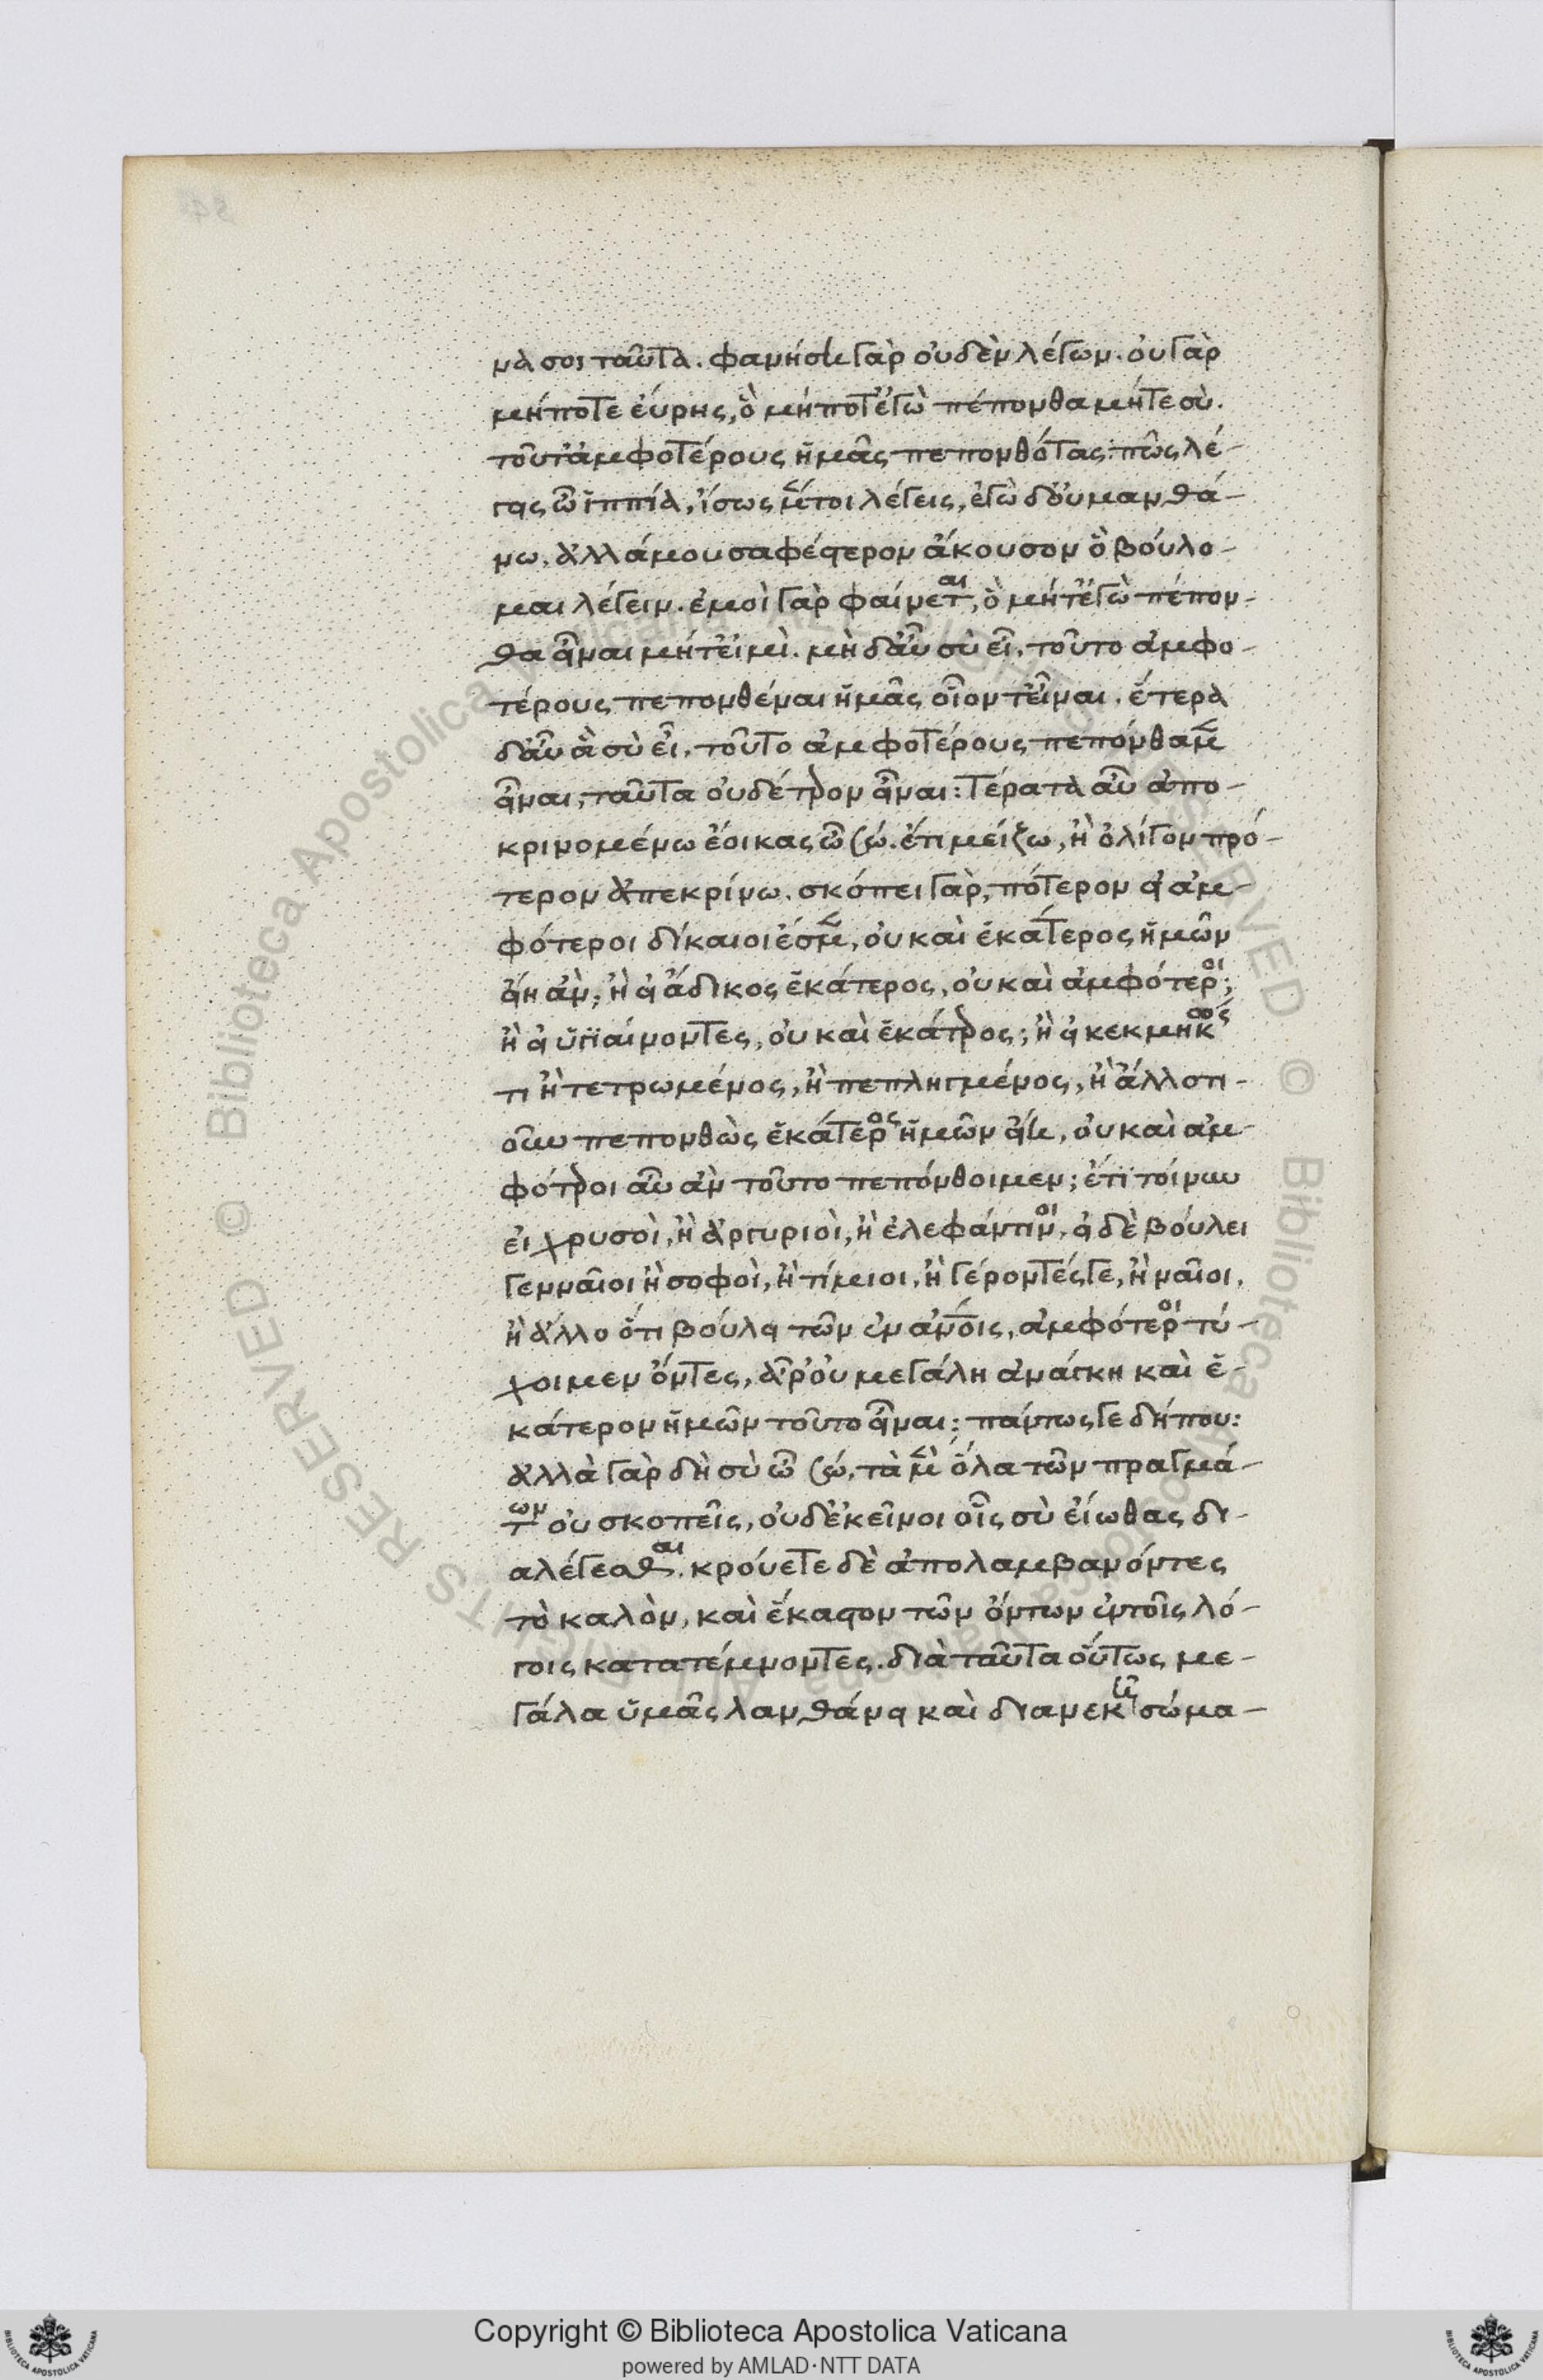 νά σοι ταῦτα. φανήσει γὰρ οὐδὲν λέγων. οὐ γὰρ
μήποτε εὕρῃς, ὃ μήποτ' ἐγὼ πέπονθα μήτε σὺ.
τοῦτ' ἀμφοτέρους ἡμᾶς πεπονθότας: πῶς λέ-
γεις ὦ ἱππία, ἴσως μέντοι λέγεις, ἐγὼ δ' οὐ μανθά-
νω. ἀλλά μου σαφέστερον ἄκουσον ὃ βούλο-
μαι λέγειν. ἐμοὶ γὰρ φαίνεται, ὃ μήτ' ἐγὼ πέπον-
θα εἶναι μήτ' εἰμὶ. μὴ δ' αὖ σὺ εἶ. τοῦτο ἀμφο-
τέρους πεπονθέναι ἡμᾶς οἷον τ' εἶναι. ἕτερα
δ' αὖ ἃ σὺ εἶ. τοῦτο ἀμφοτέρους πεπόνθαμεν
εἶναι, ταῦτα οὐδέτερον εἶναι: τέρατα αὖ ἀπο-
κρινομένω ἔοικας ὦ σώ. ἔτι μείζω, ἢ ὀλίγον πρό-
τερον ἀπεκρίνω. σκόπει γὰρ, πότερον εἰ ἀμ-
φότεροι δίκαιοι ἐσμεν, οὐ καὶ ἑκάτερος ἡμῶν
εἴη ἀν; ἢ εἰ ἄδικος ἑκάτερος, οὐ καὶ ἀμφότεροι;
ἢ εἰ ὑγιαίνοντες, οὐ καὶ ἑκάτερος; ἢ εἰ κεκμηκώς
τι ἢ τετρωμένος, ἢ πεπληγμένος, ἢ ἄλλοτι-
οῦν πεπονθὼς ἑκάτερος ἡμῶν εἴει, οὐ καὶ ἀμ-
φότεροι αὖ ἂν τοῦτο πεπόνθοιμεν; ἔτι τοίνυν
εἰ χρυσοὶ, ἢ ἀργυριοὶ, ἢ ἐλεφάντινοι, εἰ δὲ βούλει
γενναῖοι ἢ σοφοὶ, ἢ τίμιοι, ἢ γέροντές γε, ἢ ναῖοι,
ἢ ἄλλο ὅτι βούλει τῶν ἐν ἀνοις, ἀμφότεροι τύ-
χοιμεν ὄντες, ἆρ' οὐ μεγάλη ἀνάγκη καὶ ἑ-
κάτερον ἡμῶν τοῦτο εἶναι: πάντως γε δήπου:
ἀλλὰ γὰρ δὴ σὺ ὦ σώ, τὰ μὲν ὅλα τῶν πραγμά-
των οὐ σκοπεῖς, οὐδ' ἐκεῖνοι οἷς σὺ εἴωθας δι-
αλέγεσθαι. κρούετε δὲ ἀπολαμβανόντες
τὸ καλὸν, καὶ ἕκαστον τῶν ὄντων ἐν τοῖς λό-
γοις κατατέμνοντες. διὰ ταῦτα οὕτως με-
γάλα ὑμᾶς λανθάνει καὶ διανεκῆ σώμα-
Copyright © Biblioteca Apostolica Vaticana
powered by AMLAD·NTT DATA